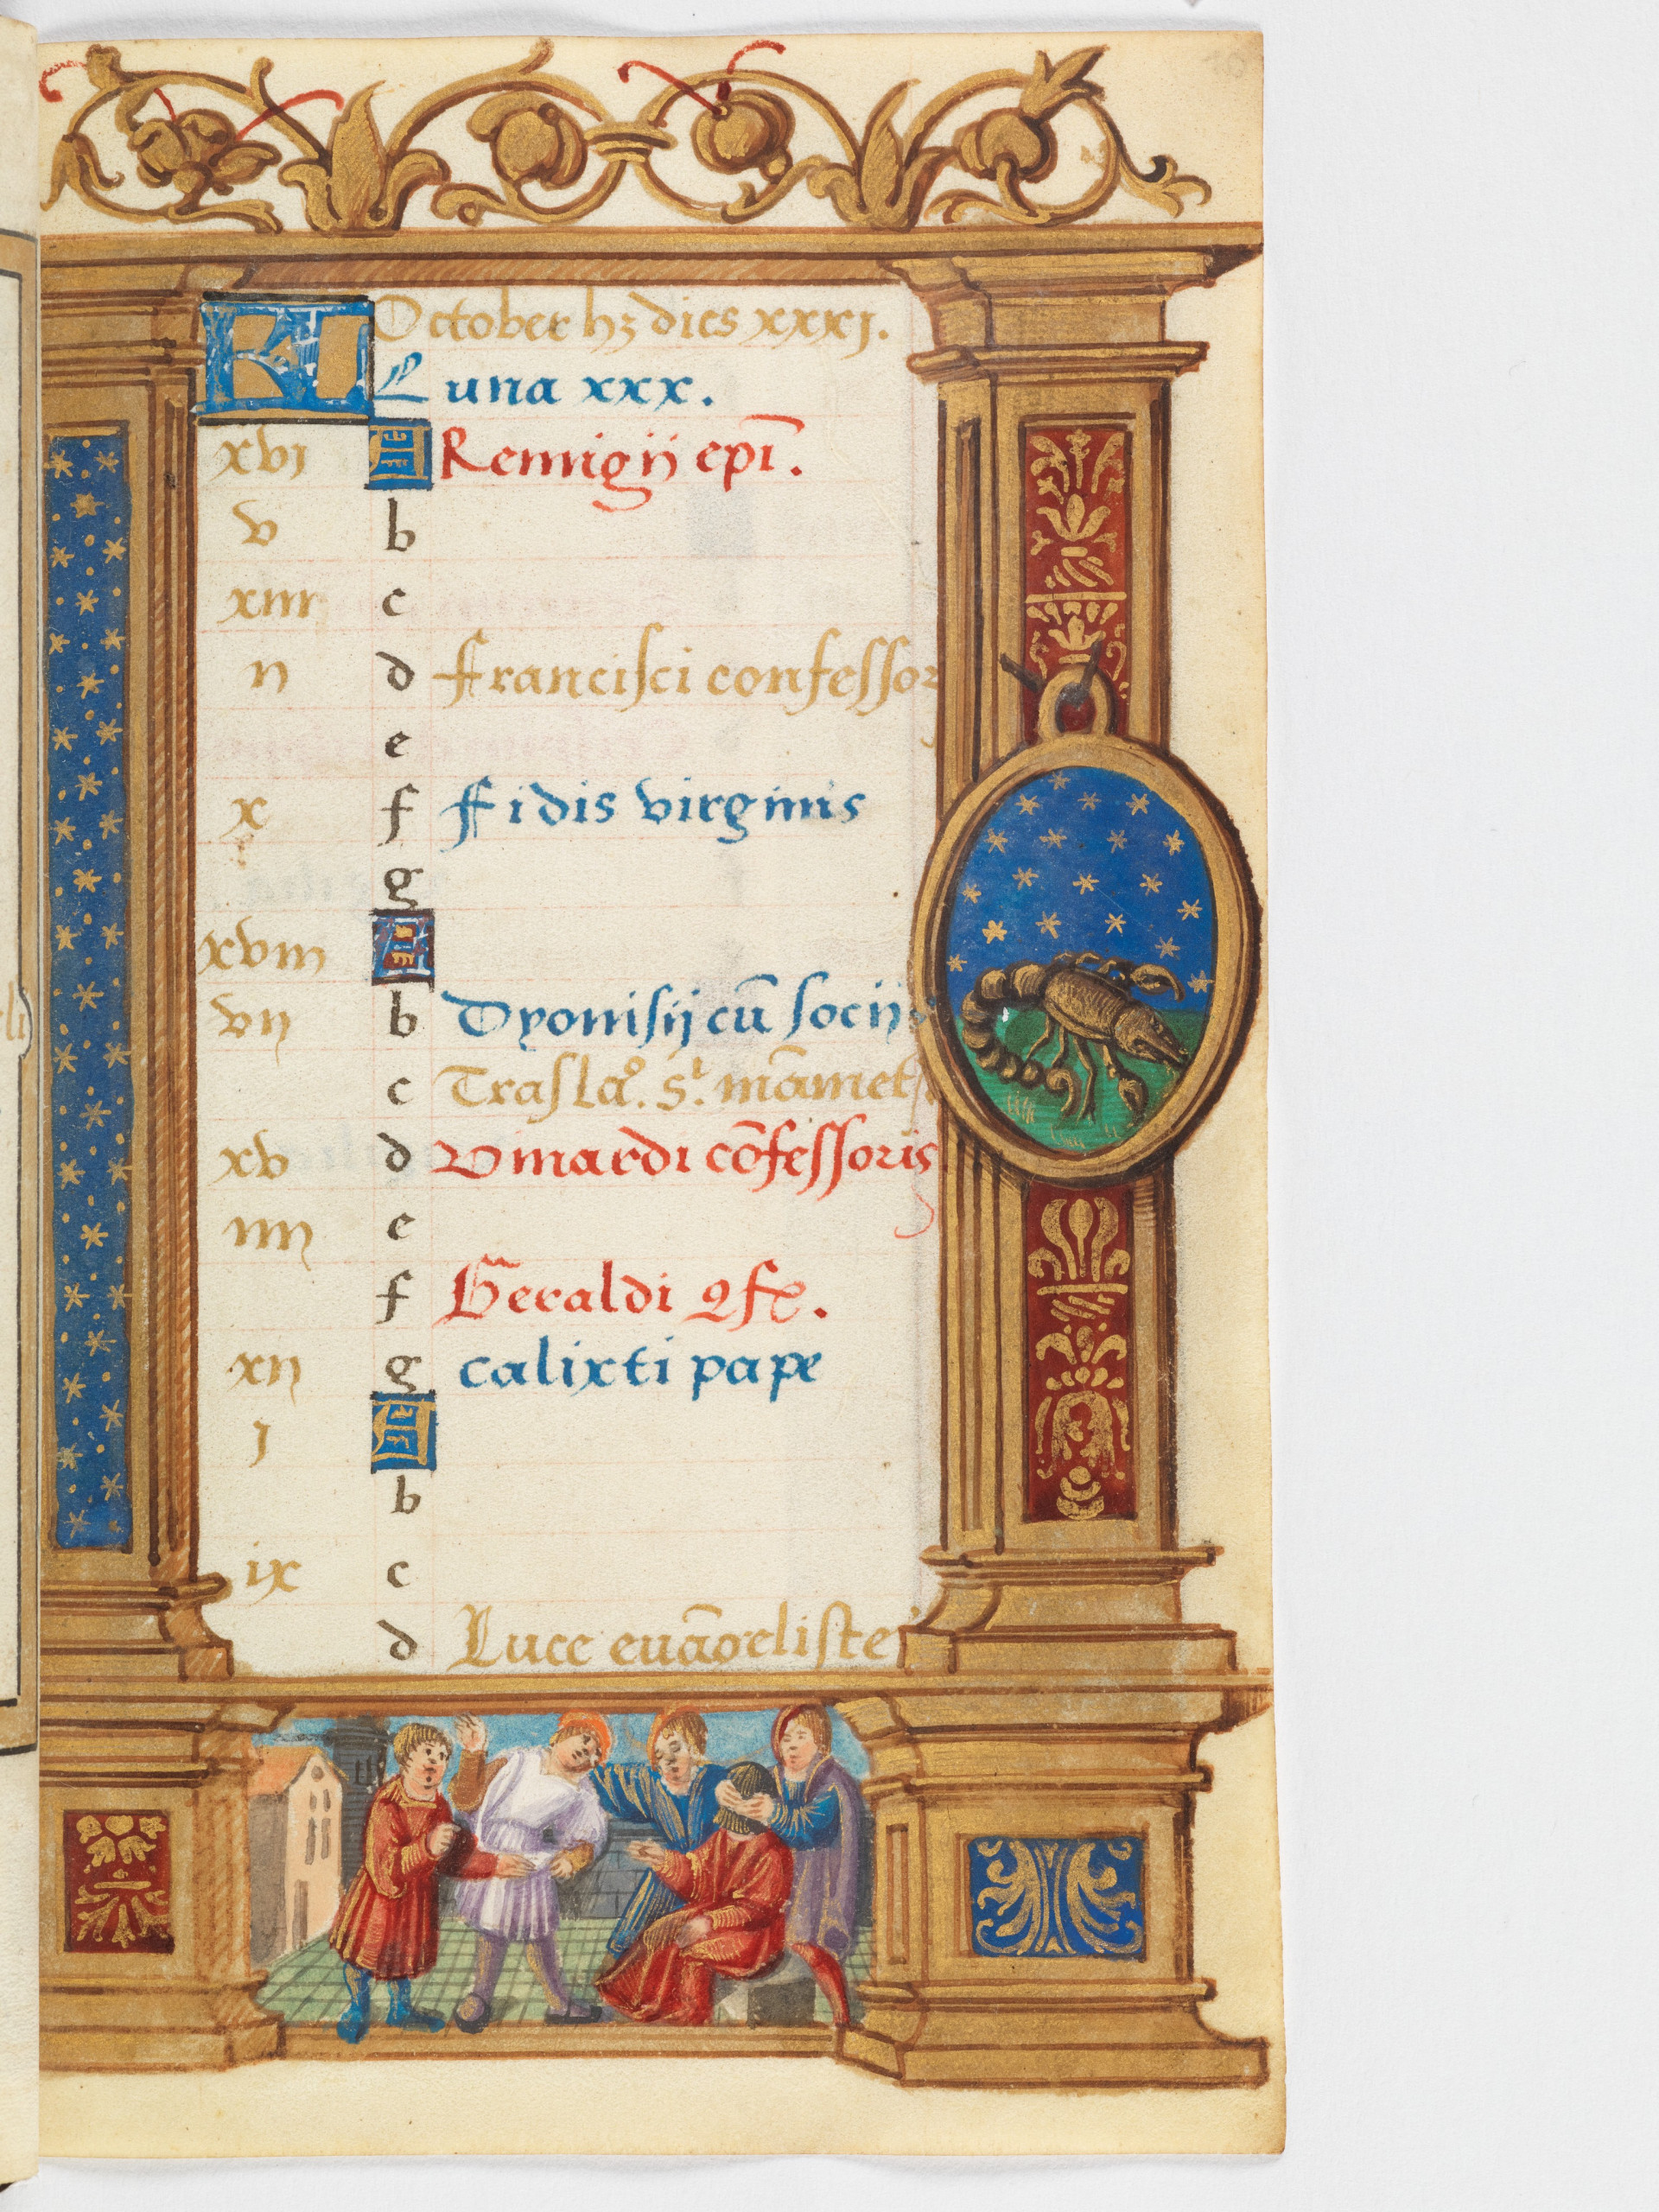 KL October hꝫ dies xxxj.
Luna xxx.
xvj A Remigij epī.
v b
xiiii c
ii d Francisci confessor
e
x f Fidis virginis
g
xviii A
vij b Dyonisij cū socijs
c Traslaº. sᵗ. māmet
xv d Vinardi cōfessoris
iiii e
f Geraldi ꝯf
xii g Calixti pape
j A
b
ix c
d Luce euāgeliste